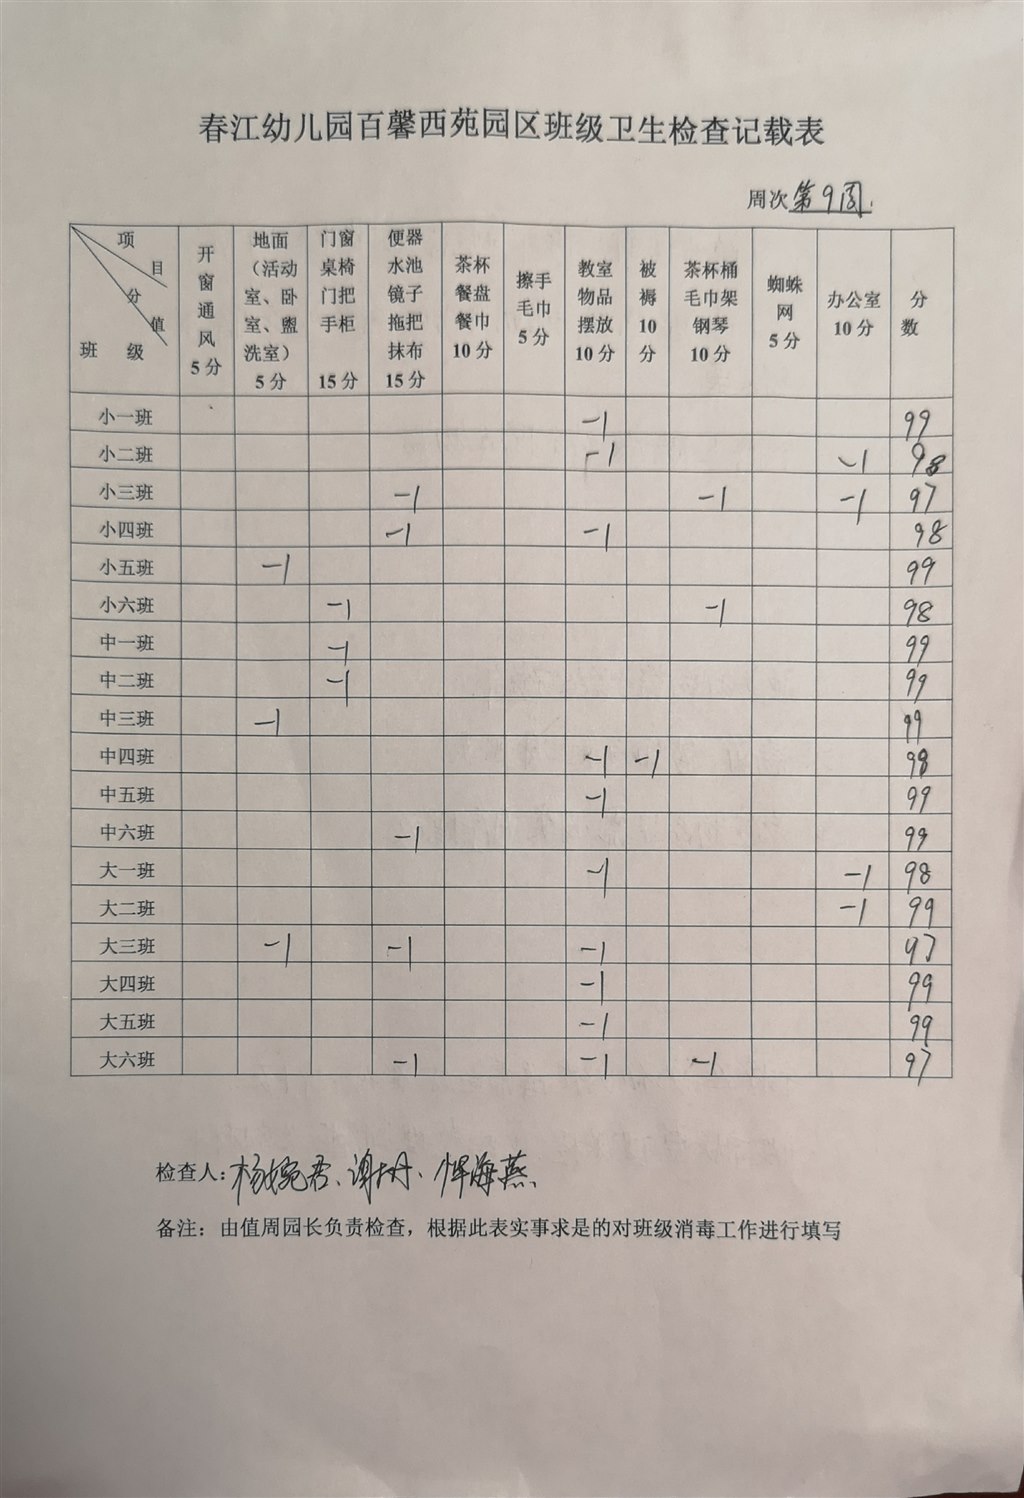 春江幼儿园百馨西苑园区班级卫生检查记载表
周次 第9周.
项目 分值 班级 | 开窗通风 5分 | 地面（活动室、卧室、盥洗室） 5分 | 门窗桌椅门把手柜 15分 | 便器水池镜子拖把抹布 15分 | 茶杯餐盘餐巾 10分 | 擦手毛巾 5分 | 教室物品摆放 10分 | 被褥 10分 | 茶杯桶毛巾架钢琴 10分 | 蜘蛛网 5分 | 办公室 10分 | 分数
小一班 -1 99
小二班 -1 -1 98
小三班 -1 -1 -1 97
小四班 -1 -1 98
小五班 -1 99
小六班 -1 -1 98
中一班 -1 99
中二班 -1 99
中三班 -1 99
中四班 -1 -1 98
中五班 -1 99
中六班 -1 99
大一班 -1 -1 98
大二班 -1 99
大三班 -1 -1 -1 97
大四班 -1 99
大五班 -1 99
大六班 -1 -1 -1 97
检查人：杨婉君、谢丹、恽海燕、
备注：由值周园长负责检查，根据此表实事求是的对班级消毒工作进行填写